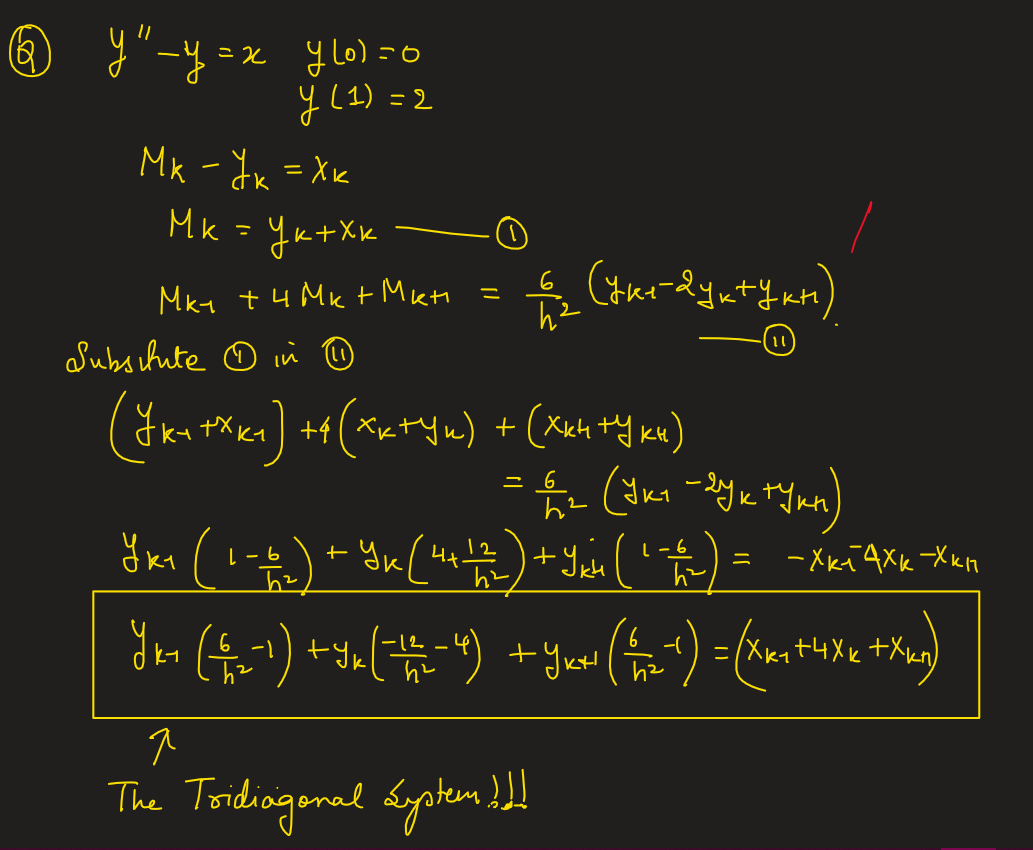 Q y'' - y = x y(0) = 0
y(1) = 2
M_k - y_k = x_k
M_k = y_k + x_k —— (I)
M_{k-1} + 4M_k + M_{k+1} = 6/h² (y_{k-1} - 2y_k + y_{k+1})
—— (II)
Substitute (I) in (II)
(y_{k-1} + x_{k-1}) + 4(x_k + y_k) + (x_{k+1} + y_{k+1})
= 6/h² (y_{k-1} - 2y_k + y_{k+1})
y_{k-1} (1 - 6/h²) + y_k (4 + 12/h²) + y_{k+1} (1 - 6/h²) = -x_{k-1} - 4x_k - x_{k+1}
y_{k-1} (6/h² - 1) + y_k (-12/h² - 4) + y_{k+1} (6/h² - 1) = (x_{k-1} + 4x_k + x_{k+1})
The Tridiagonal System!!!